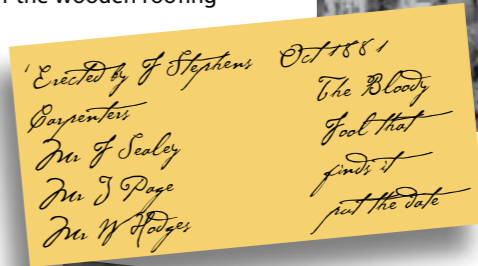 the wooden roofing
'Erected by F Stephens
Carpenters
Mr F Sealey
Mr J Page
Mr W Hodges
Oct 1881
The Bloody
Fool that
finds it
put the date